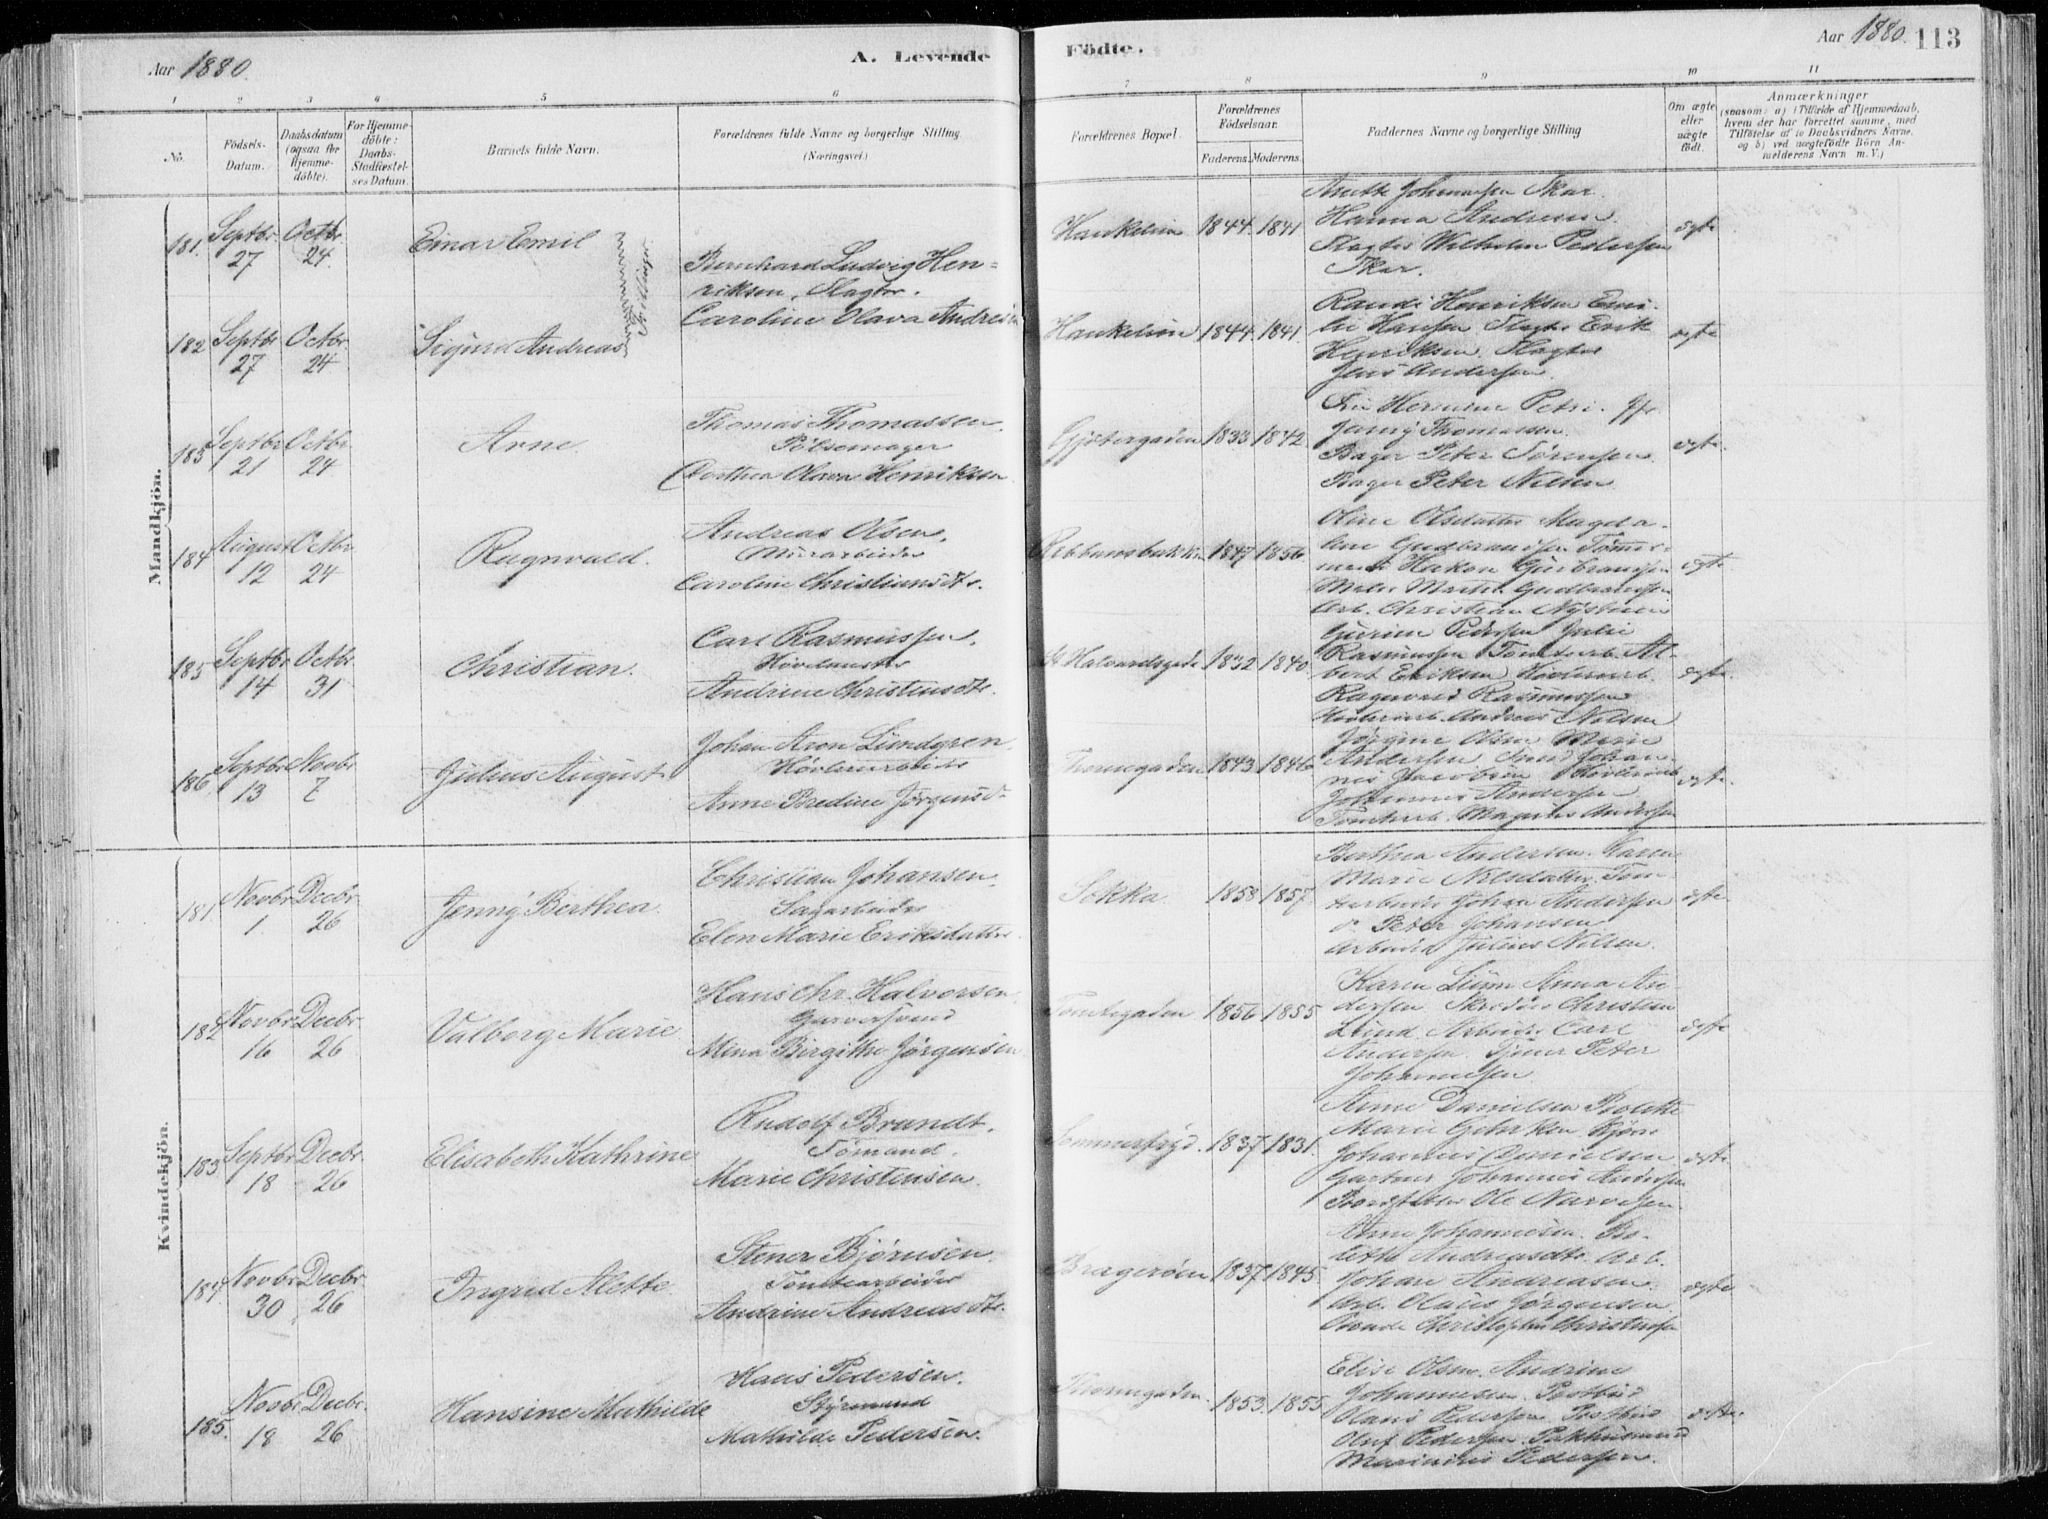 Aar 1880.
A. Levende
Födte.
Aar 1880. 113
1 2 3 4 5 6 7 8 9 10 11
No.
Födsels-Datum.
Daabsdatum (ogsaa for Hjemmedöbte).
For Hjemmedöbte: Daabs-Stadfæstelses Datum.
Barnets fulde Navn.
Forældrenes fulde Navne og borgerlige Stilling. (Næringsvei.)
Forældrenes Bopæl.
Forældrenes Födselsaar.
Faderens. Moderens.
Faddernes Navne og borgerlige Stilling
Om ægte eller uægte födt.
Anmærkninger
(saasom: a) i Tilfælde af Hjemmedaab, hvem der har forrettet samme, med Tilföielse af to Daabsvidners Navne, og b) ved uægtefödte Börn Anmelderens Navn m. V.)
Mandkjön.
181. Septbr 27 Octbr 24 Einar Emil
Tvillinger
Bernhard Ludvig Henriksen, Slagter.
Caroline Olava Andresen
Haukeliøn 1844. 1841
Anette Johannesen Skar.
Hanna Andresen
Slagter Wilhelm Pedersen
Skar.
ægte
182 Septbr 27 Octbr 24 Sigurd Andreas
Haukeliøn 1844. 1841.
Randi Henriksen Emilie Hansen Slagter Erik
Henriksen. Slagter
Jens Andersen.
ægte
183 Septbr 21 Octbr 24 Arne.
Thomas Thomassen.
Pölsemager
Dorthea Olava Henriksen
Gjetergaden 1833 1842.
Hermine Petri.
Jenny Thomassen.
Bager Peter Sørensen
Bager Peter Nielsen
ægte.
184 August 12 Octbr 24 Ragnvald.
Andreas Olsen.
Murarbeider
Caroline Christiansdtr.
1847 1856.
Oline Olsdatter Magdalene Gudbrandsen
Hakon Gudbrandsen
Maler Martin Gudbrandsen
Arb. Christian
ægte.
185 Septbr 14 Octbr 31 Christian.
Carl Rasmussen.
Høvlmester
Andrine Christensdtr.
St. Halvardsgade 1832 1840
Gurine Pedersen Julie
Rasmussen Tomtearb. Albert Eriksen Høvlerarb.
Ragnvald Rasmussen
Høvlerarb. Andreas Nielsen
ægte.
186 Septbr 13 Novbr 7 Julius August
Johan Aron Lundgren.
Høvleriarbeider
Anne Bredine Jørgensd.
Thornegaden 1843. 1846
Jørgine Olsen Marie
Andersen Johannes Jacobsen
Johannes Andersen
Tomtearb. Magnus Andersen
ægte.
Kvindekjön.
181. Novbr 1 Decbr 26 Jenny Berthea.
Christian Johansen.
Sagarbeider
Elen Marie Eriksdatter.
Sokka 1858 1857.
Berthea Andersen. Karen
Marie Nilsdatter. Tomtearbeider Johan Andersen
Peter Johansen
Arbeider Julius Nilsen.
ægte.
182 Novbr. 16 Decbr. 26 Valborg Marie
Hans Chr. Halvorsen.
Garversvend
Mina Birgithe Jørgensen
Tomtegaden 1856 1855
Karen Lund Anna Andersen Skredder Christian
Lund. Arbeider Carl
Andersen. Tjener Peter
Johannesen
ægte
183 Septbr. 18 Decbr. 26 Elisabeth Kathrine
Rudolf Brandt.
Sømand.
Marie Christensen.
Sommerfryd. 1837 1831.
Anne Danielsen Bolette
Marie
Johannes Danielsen
Gartner Johannes Andersen
Ole Narvesen.
ægte
184. Novbr 30 Decbr. 26 Ingrid Alette.
Stener Bjørnsen.
Tomtearbeider
Andrine Andreasdtr.
Bragerøen 1837 1845.
Anne Johannesen. Bolette Andreasdtr. Arb.
Johan Andreasen.
Arb. Olaus Jørgensen
Christopher Christensen
ægte
185. Novbr. 18 Decbr. 26 Hansine Mathilde
Hans Pedersen.
Styrmand
Mathilde Pedersen.
Thornegaden. 1853. 1855
Elise Olsen. Andrine
Johannesen. Postbud
Olaus Pedersen. Postbud
Oluf Pedersen. Pakhusmand
Marinius Pedersen.
ægte.